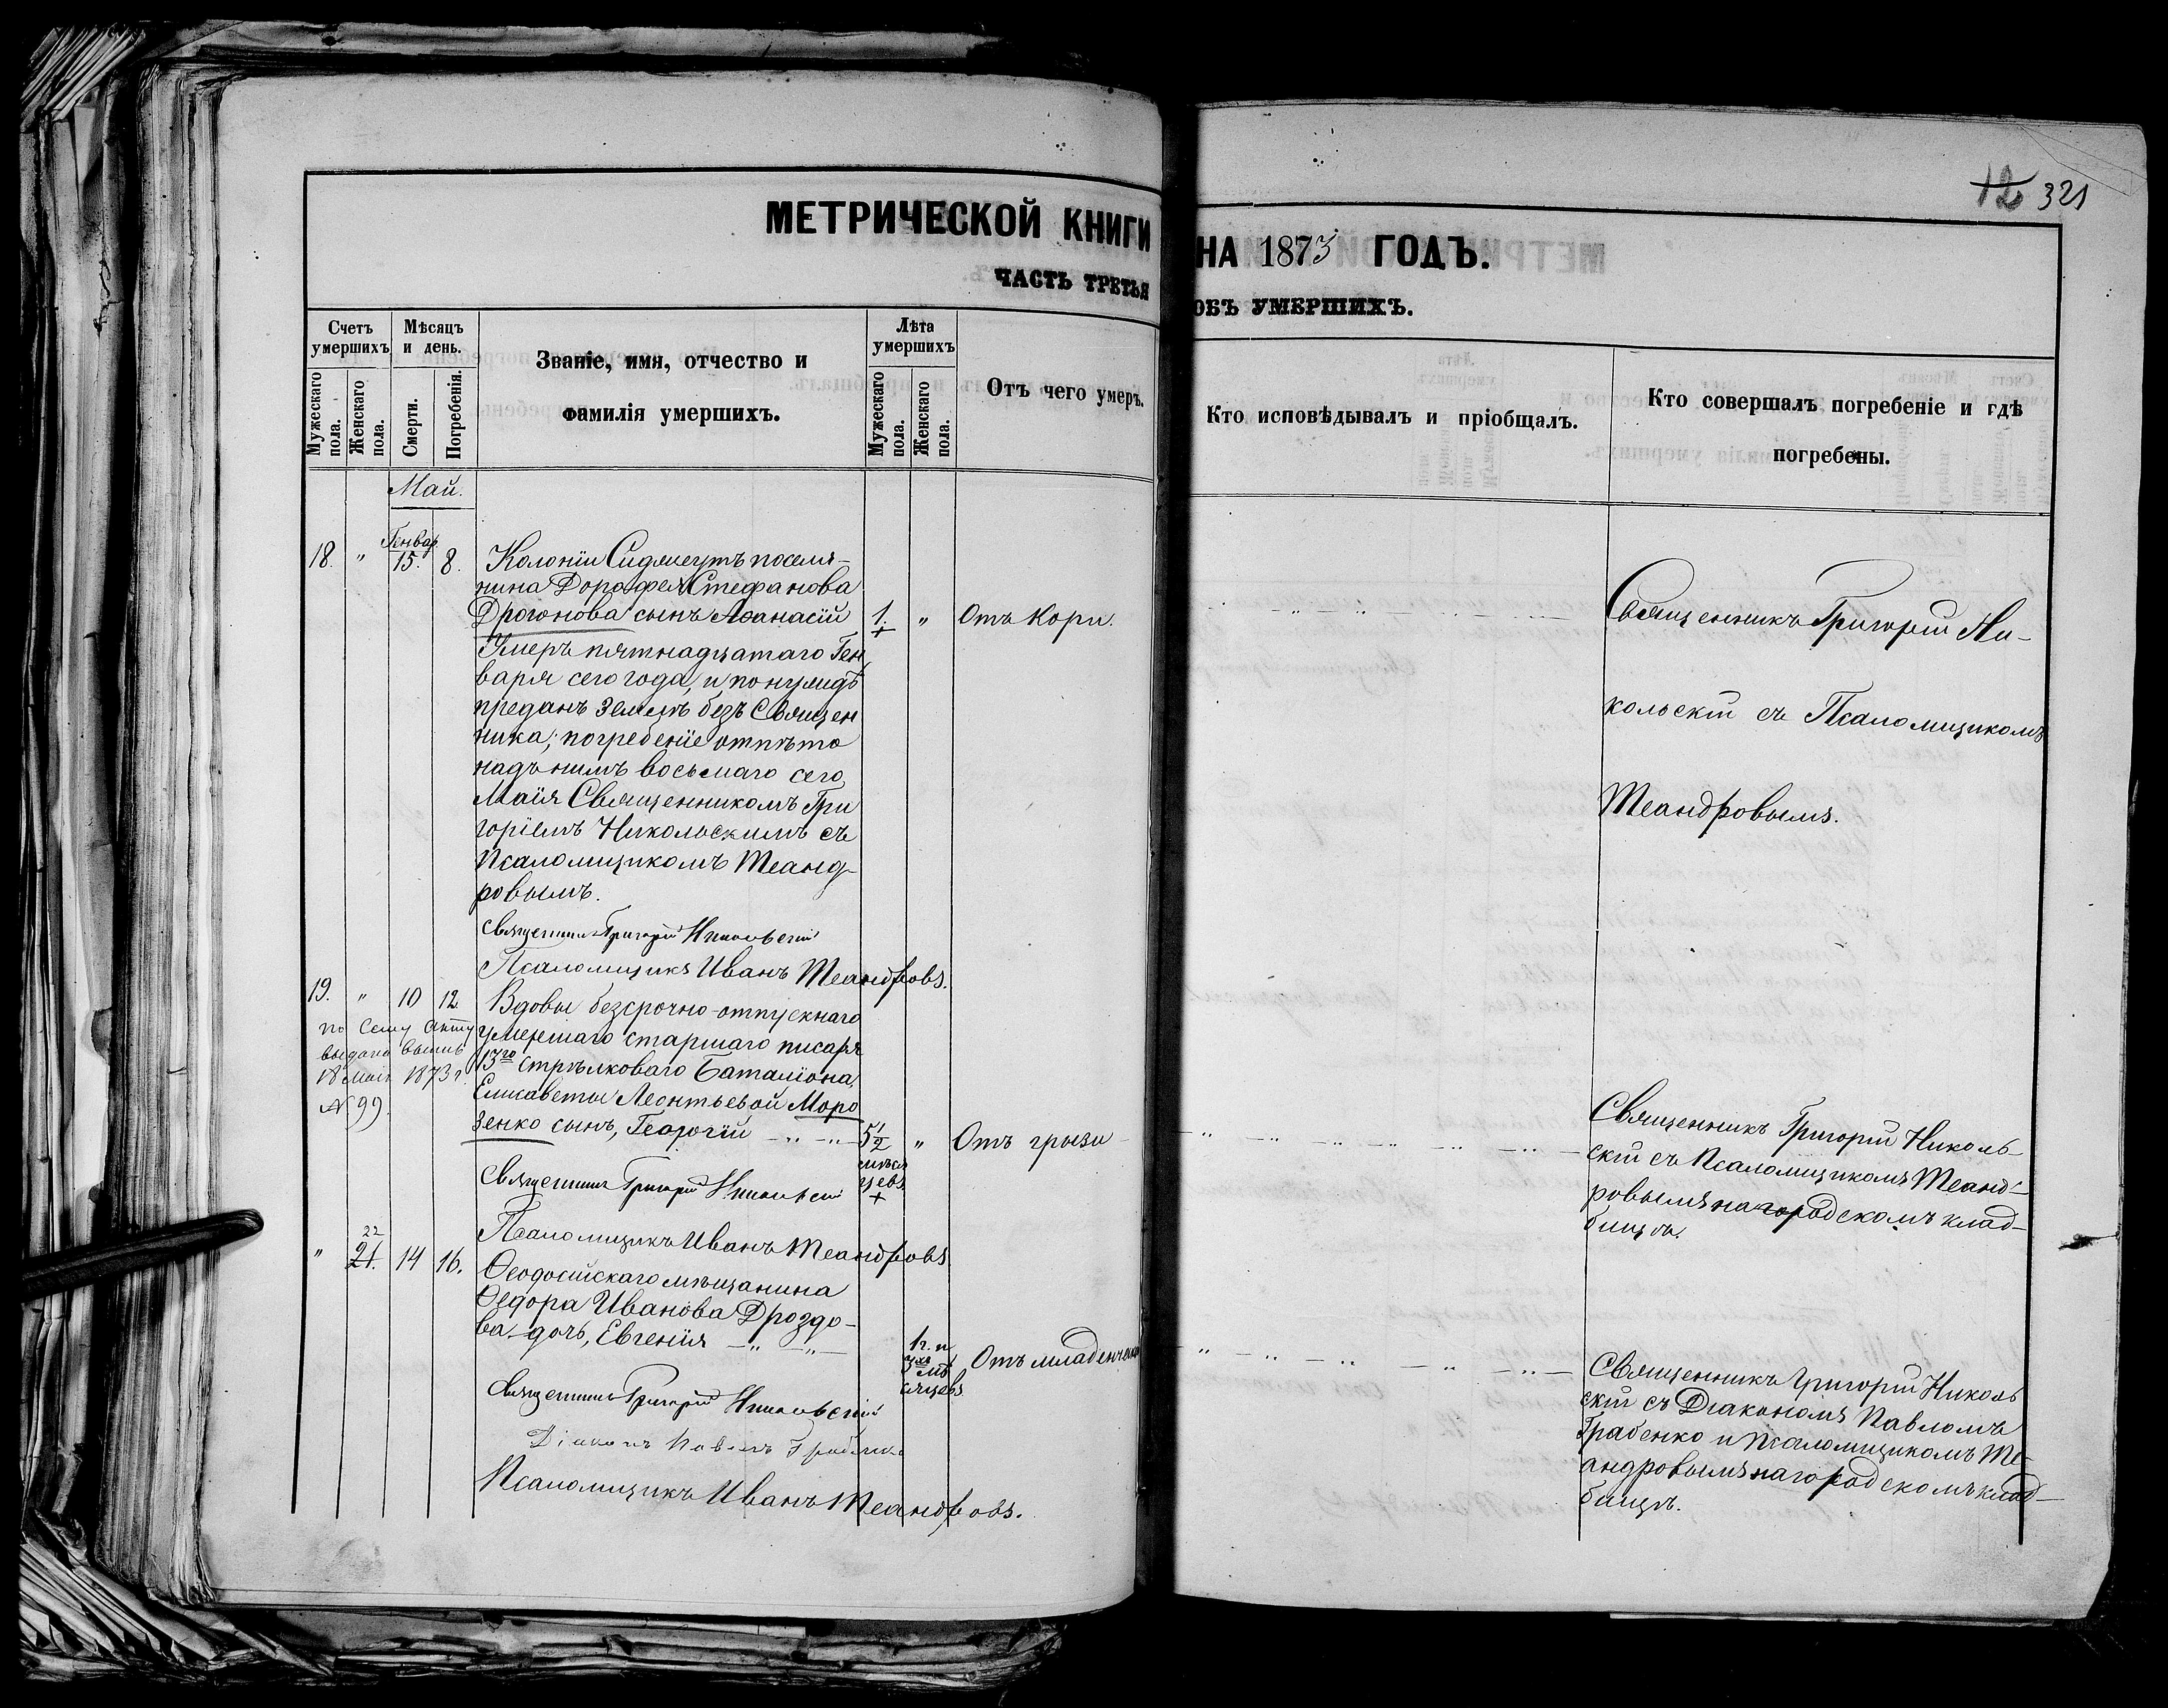 12 321
МЕТРИЧЕСКОЙ КНИГИ НА 1873 ГОДЪ.
ЧАСТЬ ТРЕТЬЯ ОБЪ УМЕРШИХЪ.
Счетъ умершихъ
Мужескаго пола.
Женскаго пола.
Мѣсяцъ и день.
Смерти.
Погребенія.
Званіе, имя, отчество и
фамилія умершихъ.
Лѣта умершихъ
Мужескаго пола.
Женскаго пола.
Отъ чего умеръ.
Кто исповѣдывалъ и пріобщалъ.
Кто совершалъ погребеніе и гдѣ
погребены.
Май.
18. " Генвар 15. 8.
Колоніи Сидмеутъ поселя-
нина Дорофея Стефанова
Дрогонова сынъ Аѳанасій 1. " Отъ Кори.
Умеръ пятнадцатаго Ген
варя сего года, и по нуждѣ
преданъ землѣ безъ Священ
ника; погребеніе отпѣто
надъ нимъ восьмаго сего
Маія Священникомъ Гри
горіемъ Никольскимъ съ
Псаломщикомъ Меанд-
ровымъ.
Священникъ Григорій Никольскій
Псаломщикъ Иванъ Меандровъ.
Священникъ Григорій Ни-
кольскій съ Псаломщикомъ
Меандровымъ.
19. " 10 12
по сему акту
выдана выпись
18 Маія 1873 г.
№ 99.
Вдовы безсрочно-отпускнаго
умершаго старшаго писаря
13го стрѣлковаго Баталіона,
Елисаветы Леонтьевой Моро
зенко сынъ, Георгій 5 1/2 " Отъ грызи
мѣся
цевъ
Священникъ Григорій Никольскій
Псаломщикъ Иванъ Меандровъ
Священникъ Григорій Николь-
скій съ Псаломщикомъ Меанд-
ровымъ на городскомъ клад-
бищѣ.
22
" 21. 14 16.
Ѳеодосійскаго мѣщанина
Ѳедора Иванова Дроздо-
ва дочь, Евгенія
1 г. и
3 хъ мѣ
сяцевъ
Отъ младенческой
Священникъ Григорій Никольскій
Діаконъ Павелъ Грабенко
Псаломщикъ Иванъ Меандровъ.
Священникъ Григорій Николь
скій съ Діакономъ Павломъ
Грабенко и Псаломщикомъ Ме-
андровымъ на городскомъ клад-
бищѣ.